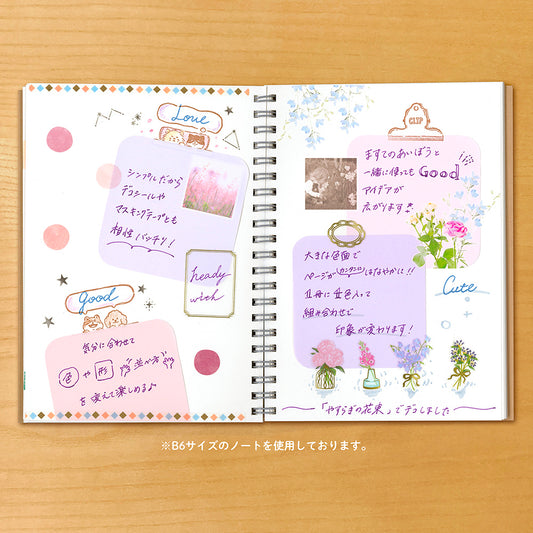 Love
シンプルだから
デコシールや
マスキングテープとも
相性バッチリ!
heady
wish
Good
気分に合わせて
色や形 並べ方
を変えて楽しめる♪
CLIP
ますてのあいぼうと
一緒に使っても Good
アイデアが
広がります
大きな色面で
ページがカンタンにはなやかに!!
1冊に 色入って
組み合わせで
印象が変わります!
Cute
「やすらぎの花束」でデコしました
※B6サイズのノートを使用しております。